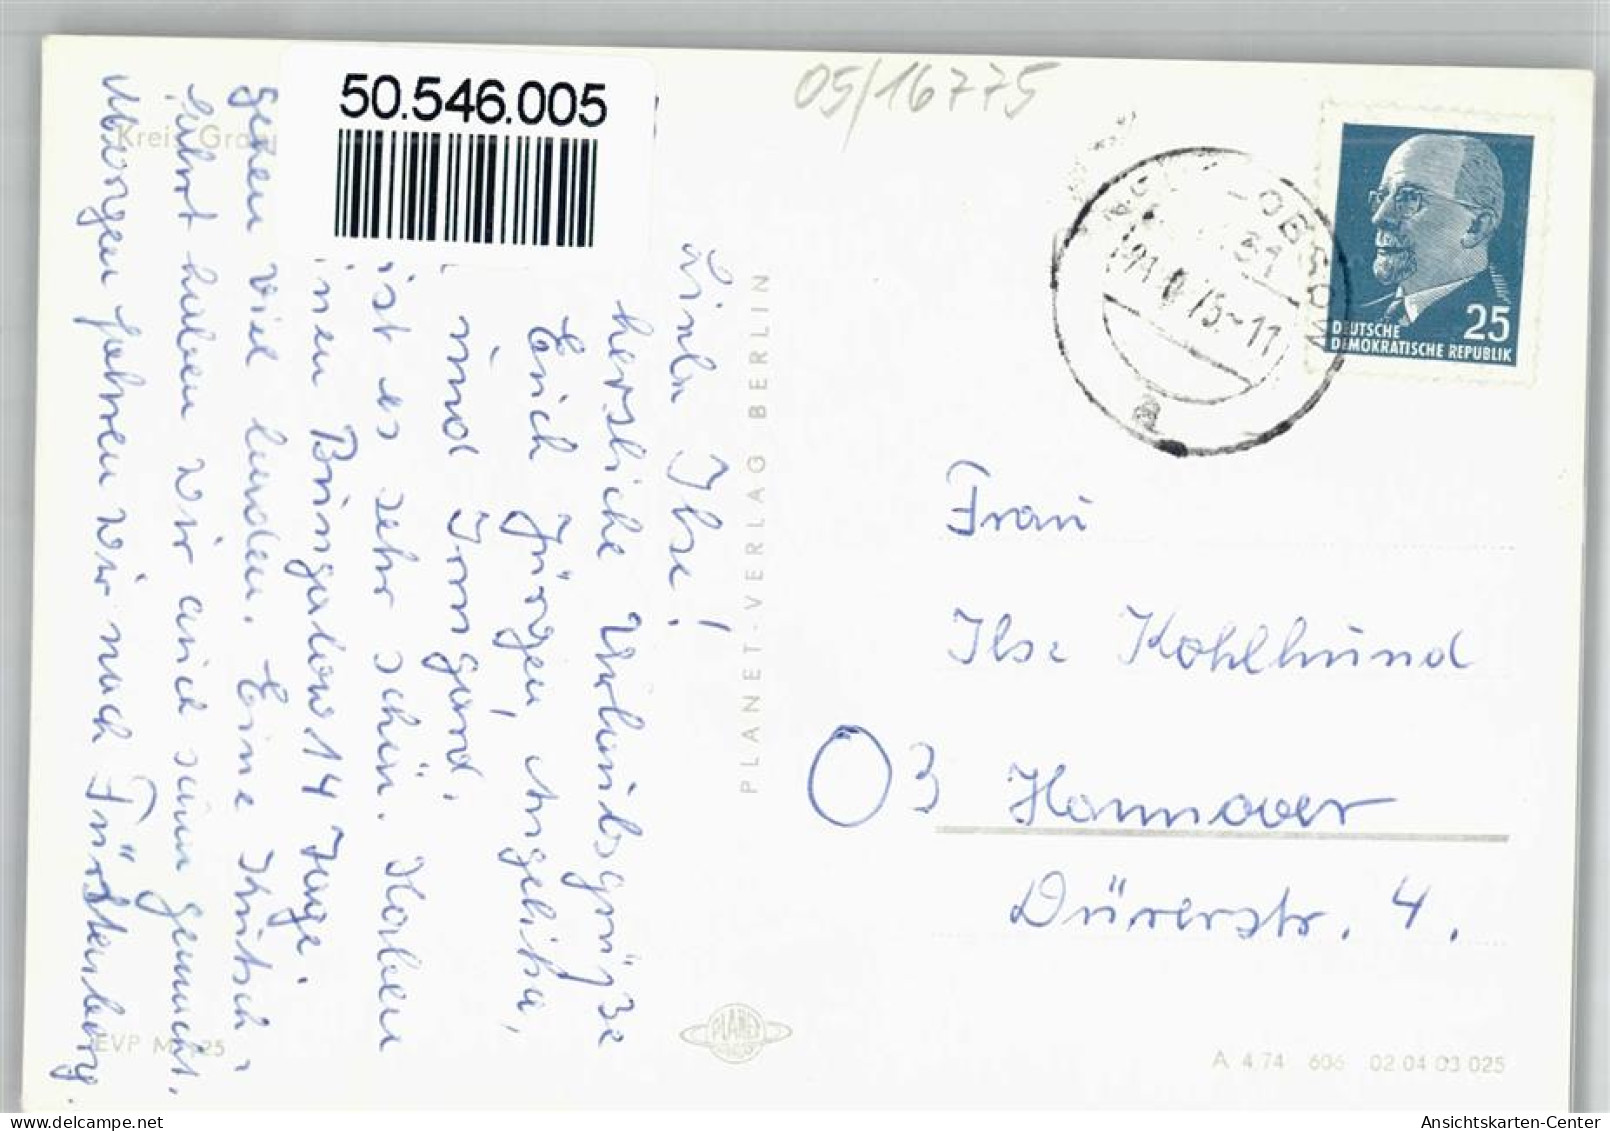 50.546.005
05/16775
Kreis Gra
Liebe Ilse!
herzliche Urlaubsgrüße
Erich Jürgen, Angelika,
und Irmgard.
ist es sehr schön. Haben
nen Bungalow 14 Tage.
gehen viel baden. Eine Kutsch-
fahrt haben wir auch schon gemacht.
Morgen fahren wir nach Fürstenberg.
EVP M 0,25
PLANET-VERLAG BERLIN
PLANET
75-11
a
25
DEUTSCHE
DEMOKRATISCHE REPUBLIK
Frau
Ilse Kohlhund
O3 Hannover
Dürerstr. 4.
A 4.74 606 02 04 03 025
Ansichtskarten-Center